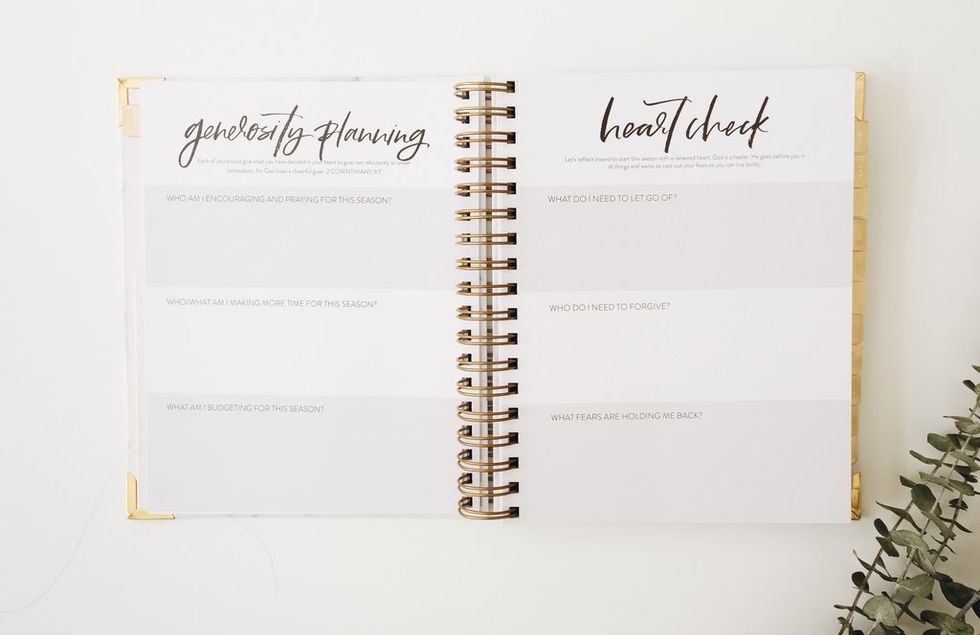 generosity planning
Each of you should give what you have decided in your heart to give, not reluctantly or under
compulsion, for God loves a cheerful giver. 2 CORINTHIANS 9:7
WHO AM I ENCOURAGING AND PRAYING FOR THIS SEASON?
WHO/WHAT AM I MAKING MORE TIME FOR THIS SEASON?
WHAT AM I BUDGETING FOR THIS SEASON?
heart check
Let's reflect inward to start this season with a renewed heart. God is a healer. He goes before you in
all things and wants to cast out your fears so you can live boldly.
WHAT DO I NEED TO LET GO OF?
WHO DO I NEED TO FORGIVE?
WHAT FEARS ARE HOLDING ME BACK?